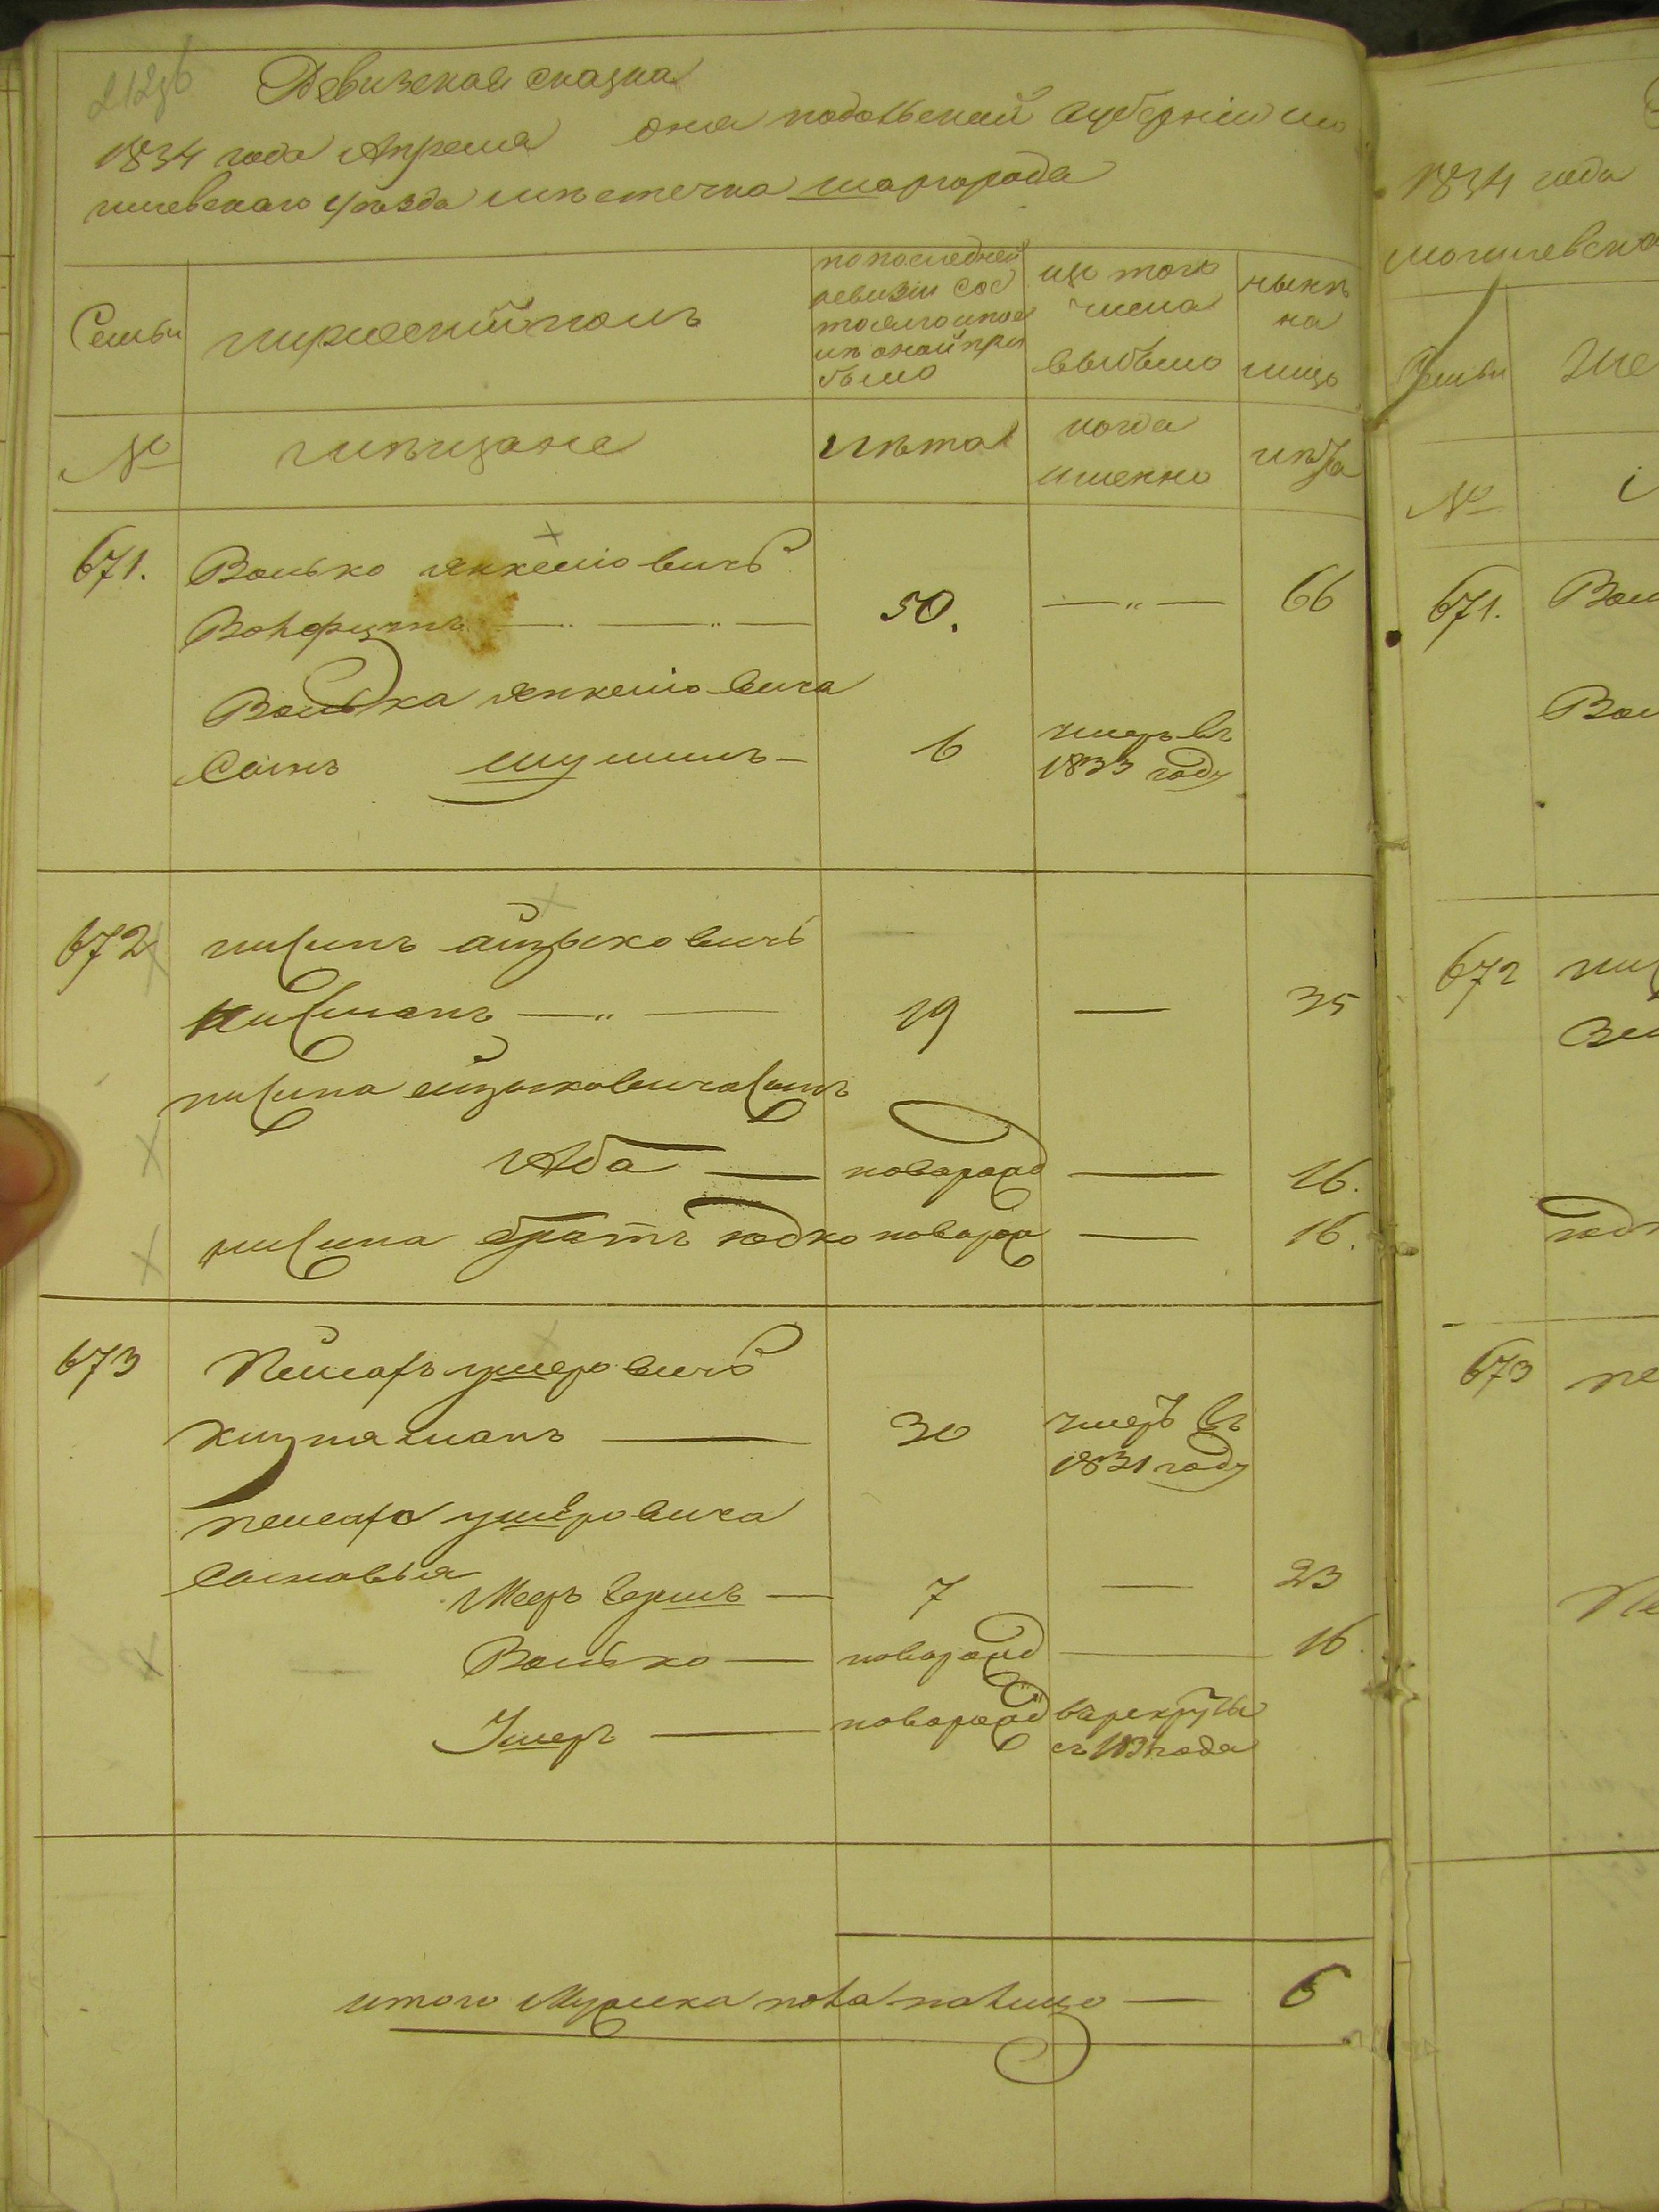 Ревизская сказка
1834 года Апреля дня подольской губерніи мо
гилевскаго уѣзда мѣстечка шаргорода
Семьи
мужескій полъ
по последней
ревизіи сос
тояло и после
оной при
было
изъ того
числа
выбыло
нынѣ
на
лицо
№
мѣщане
лѣта
когда
именно
лѣта
671.
Волько Янкеліовичъ
50.
66
Волька Янкеліовича
Сынъ шулимъ
6
умеръ въ
1833 году
672
нисинъ айзыковичъ
19
35
нисина айзыковича сынъ
Аба
новорожд
16.
нисина братъ юдко новорож
16.
673
Пейсахъ ушеровичъ
30
умеръ въ
1831 году
пейсаха ушеровича
Сыновья
Мееръ Бершъ
7
23
Волько
новорожд
16
Ушеръ
новорожд
в рекруты
съ года
итого Мужеска пола на лицо
6
1834 года
могилевска
Семьи
Же
№
671.
Вол
Вол
672
нис
юдк
673
пе